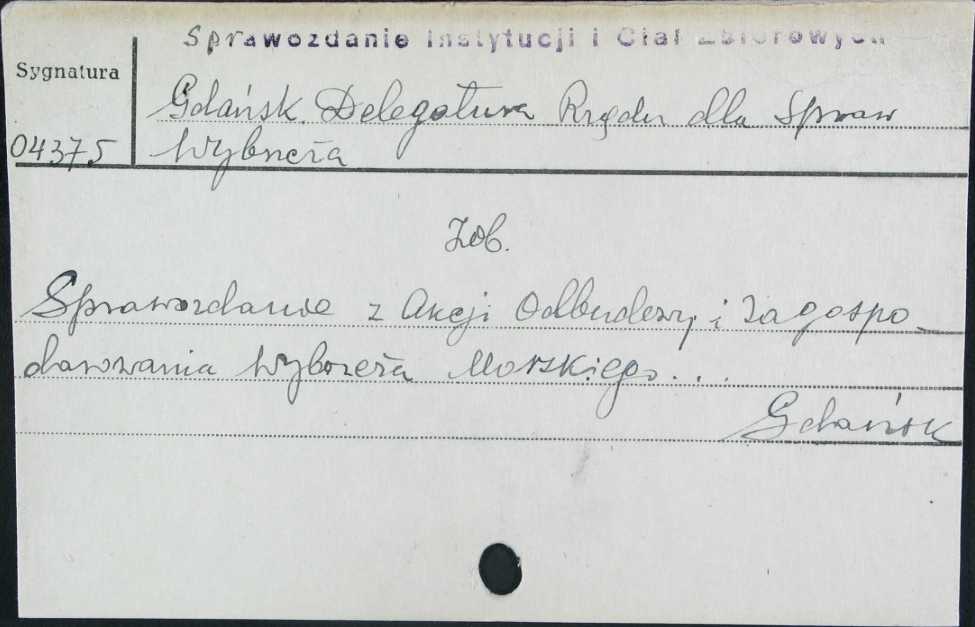 Sprawozdanie Instytucji i Ciał Zbiorowych
Sygnatura
Gdańsk. Delegatura Rządu dla Spraw
04375 Wybrzeża
Zob.
Sprawozdanie z Akcji Odbudowy i Zagospo-
darowania Wybrzeża Morskiego...
Gdańsk